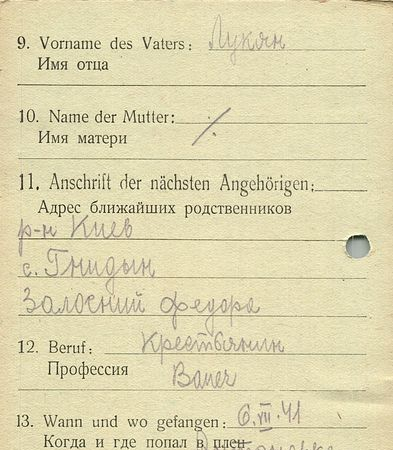 9. Vorname des Vaters: Лукян
Имя отца
10. Name der Mutter: /.
Имя матери
11. Anschrift der nächsten Angehörigen:
Адрес ближайших родственников
р-н Киев
с. Гнидын
Федора
12. Beruf: Крестьянин
Профессия Bauer
13. Wann und wo gefangen: 6.VII.41
Когда и где попал в плен